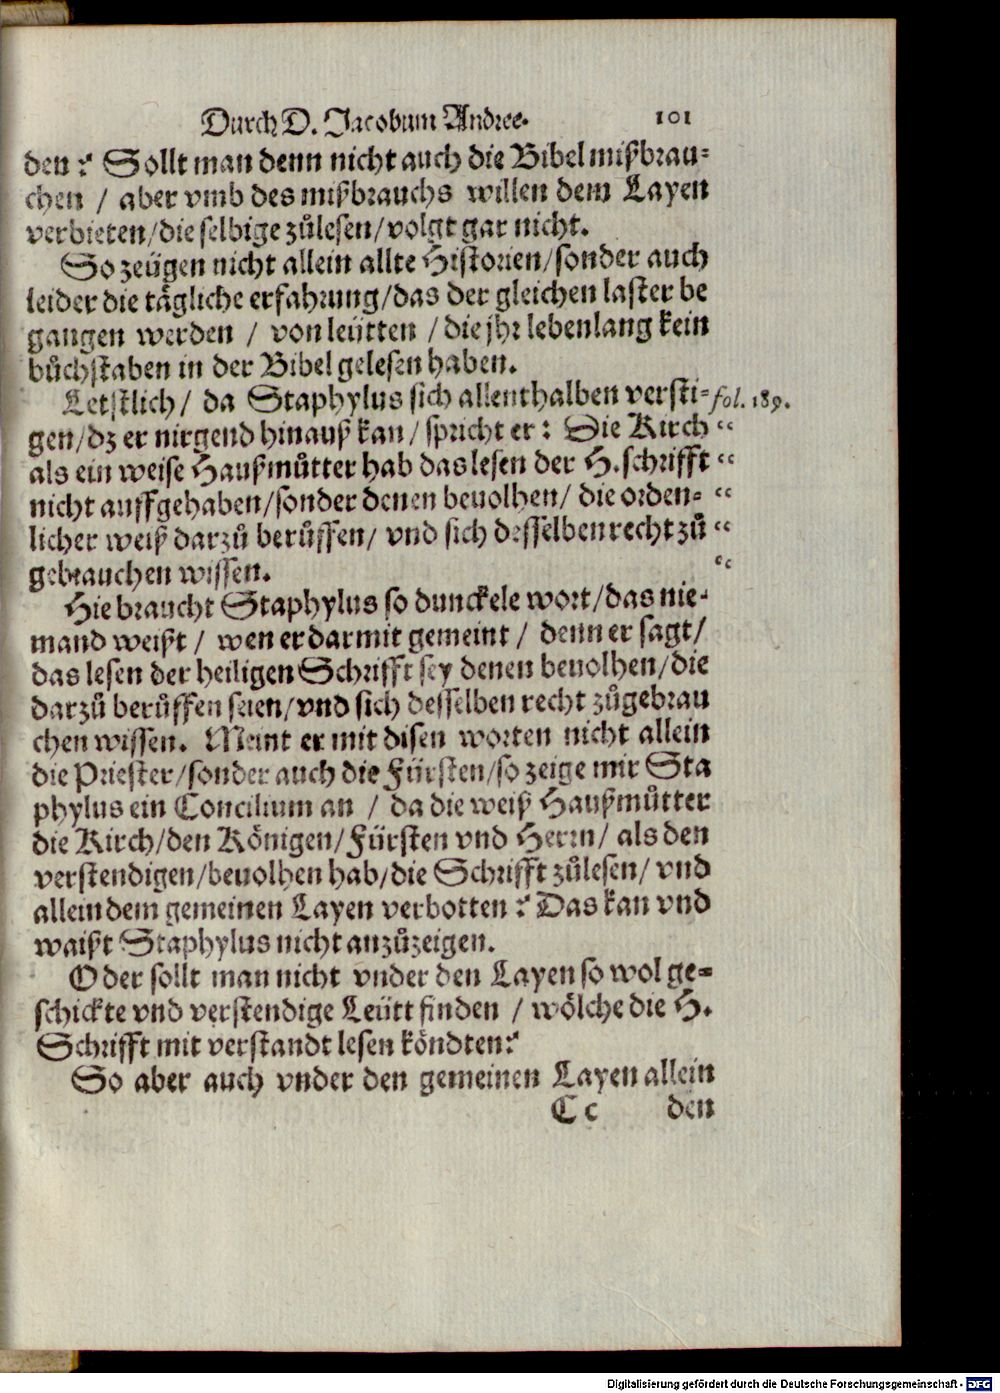 Durch D. Jacobum Andree. 101
den? Sollt man denn nicht auch die Bibel mißbrau-
chen / aber vmb des mißbrauchs willen dem Layen
verbieten/die selbige zůlesen/volgt gar nicht.
So zeügen nicht allein allte Historien/sonder auch
leider die tägliche erfahrung/das der gleichen laster be
gangen werden / von leütten / die jhr lebenlang kein
bůchstaben in der Bibel gelesen haben.
Letstlich/ da Staphylus sich allenthalben versti- fol. 189.
gen/dz er nirgend hinauß kan/ spricht er: Die Kirch “
als ein weise Haußmůtter hab das lesen der H. schrifft “
nicht auffgehaben/sonder denen beuolhen/ die orden- “
licher weiß darzů berůffen/ vnd sich desselben recht zů “
gebrauchen wissen. “
Hie braucht Staphylus so dunckele wort/das nie-
mand weißt / wen er darmit gemeint / denn er sagt/
das lesen der heiligen Schrifft sey denen beuolhen/die
darzů berůffen seien/vnd sich desselben recht zůgebrau
chen wissen. Meint er mit disen worten nicht allein
die Priester/sonder auch die Fürsten/so zeige mir Sta
phylus ein Concilium an / da die weiß Haußmůtter
die Kirch/den Königen/Fürsten vnd Herrn/ als den
verstendigen/beuolhen hab/die Schrifft zůlesen/ vnd
allein dem gemeinen Layen verbotten? Das kan vnd
waißt Staphylus nicht anzůzeigen.
Oder sollt man nicht vnder den Layen so wol ge-
schickte vnd verstendige Leütt finden / wölche die H.
Schrifft mit verstandt lesen köndten?
So aber auch vnder den gemeinen Layen allein
Cc den
Digitalisierung gefördert durch die Deutsche Forschungsgemeinschaft - DFG